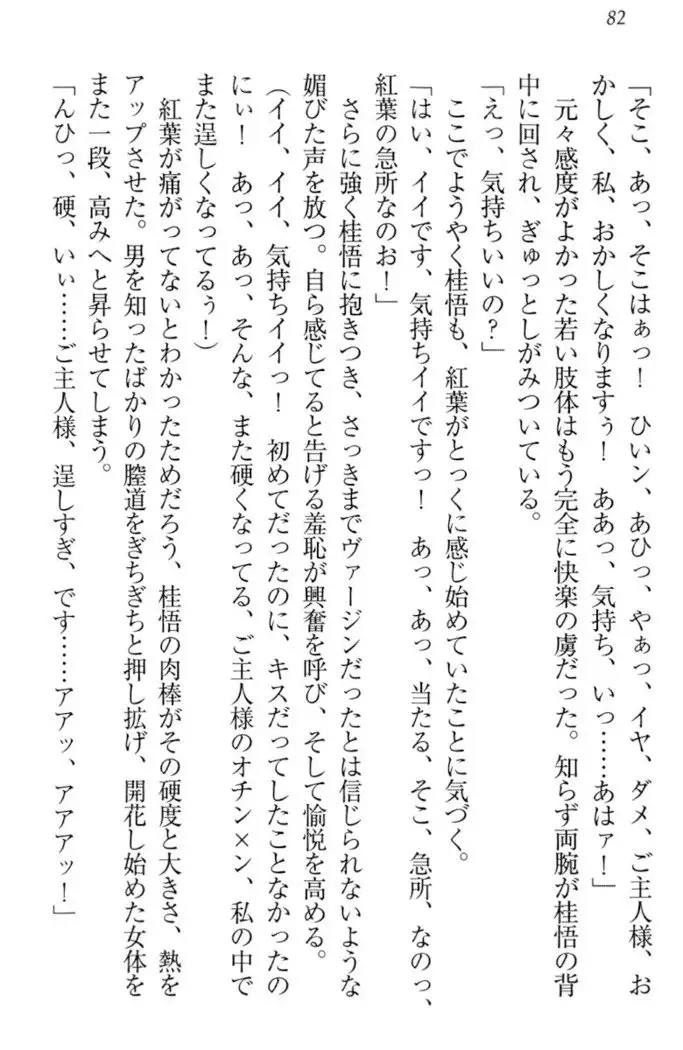 82
「そこ、あっ、そこはぁっ！　ひいン、あひっ、やぁっ、イヤ、ダメ、ご主人様、お
かしく、私、おかしくなりますぅ！　ああっ、気持ち、いっ……あはァ！」
元々感度がよかった若い肢体はもう完全に快楽の虜だった。知らず両腕が桂悟の背
中に回され、ぎゅっとしがみついている。
「えっ、気持ちいいの？」
ここでようやく桂悟も、紅葉がとっくに感じ始めていたことに気づく。
「はい、イイです、気持ちイイですっ！　あっ、あっ、当たる、そこ、急所、なのっ、
紅葉の急所なのお！」
さらに強く桂悟に抱きつき、さっきまでヴァージンだったとは信じられないような
媚びた声を放つ。自ら感じてると告げる羞恥が興奮を呼び、そして愉悦を高める。
（イイ、イイ、気持ちイイっ！　初めてだったのに、キスだってしたことなかったの
にぃ！　あっ、あっ、そんな、また硬くなってる、ご主人様のオチン×ン、私の中で
また逞しくなってるぅ！）
紅葉が痛がってないとわかったためだろう、桂悟の肉棒がその硬度と大きさ、熱を
アップさせた。男を知ったばかりの膣道をぎちぎちと押し拡げ、開花し始めた女体を
また一段、高みへと昇らせてしまう。
「んひっ、硬、いぃ……ご主人様、逞しすぎ、です……アアッ、アアアッ！」